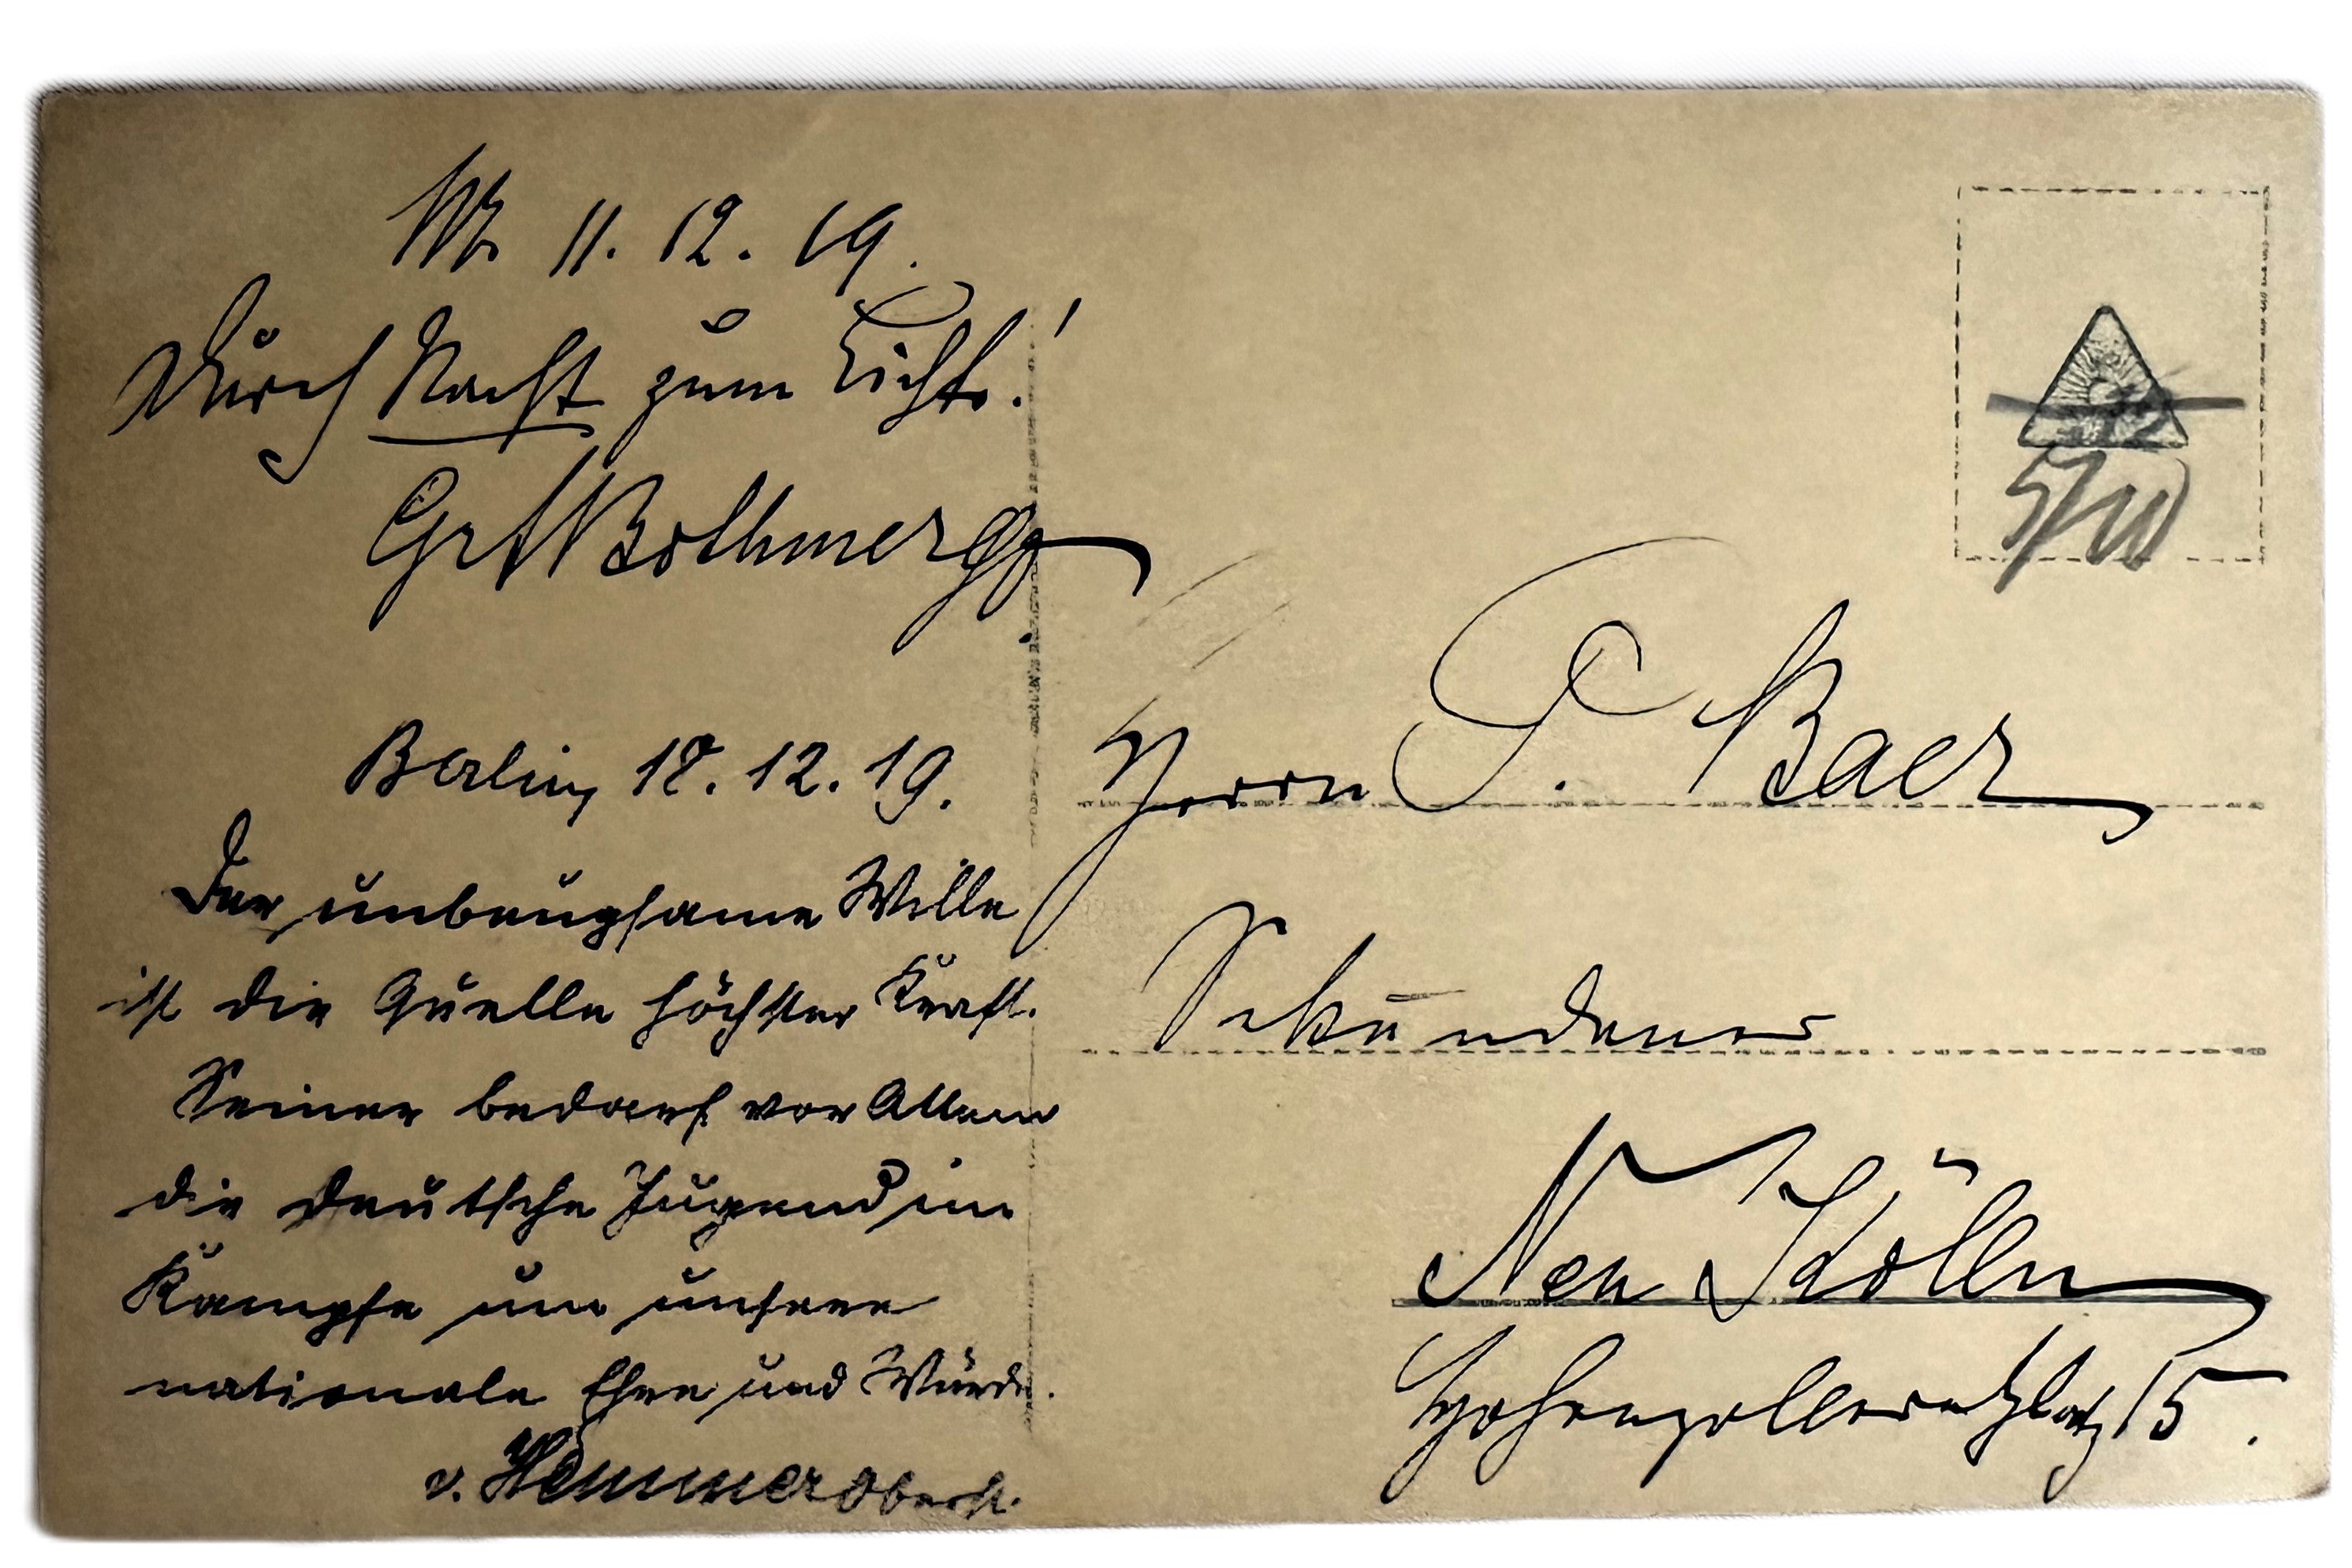 11. 12. 19.
Durch Nacht zum Licht!
Grf Bothmer
Berlin, 18. 12. 19.
Der unbeugsame Wille
ist die Quelle höchster Kraft.
Seiner bedarf vor Allem
die deutsche Jugend im
Kampfe um unsere
nationale Ehre und Würde.
v. Hemmer Oberst.
Herrn P. Baer
Sekundaner
Neu Kölln
Hohenzollernplatz 15.